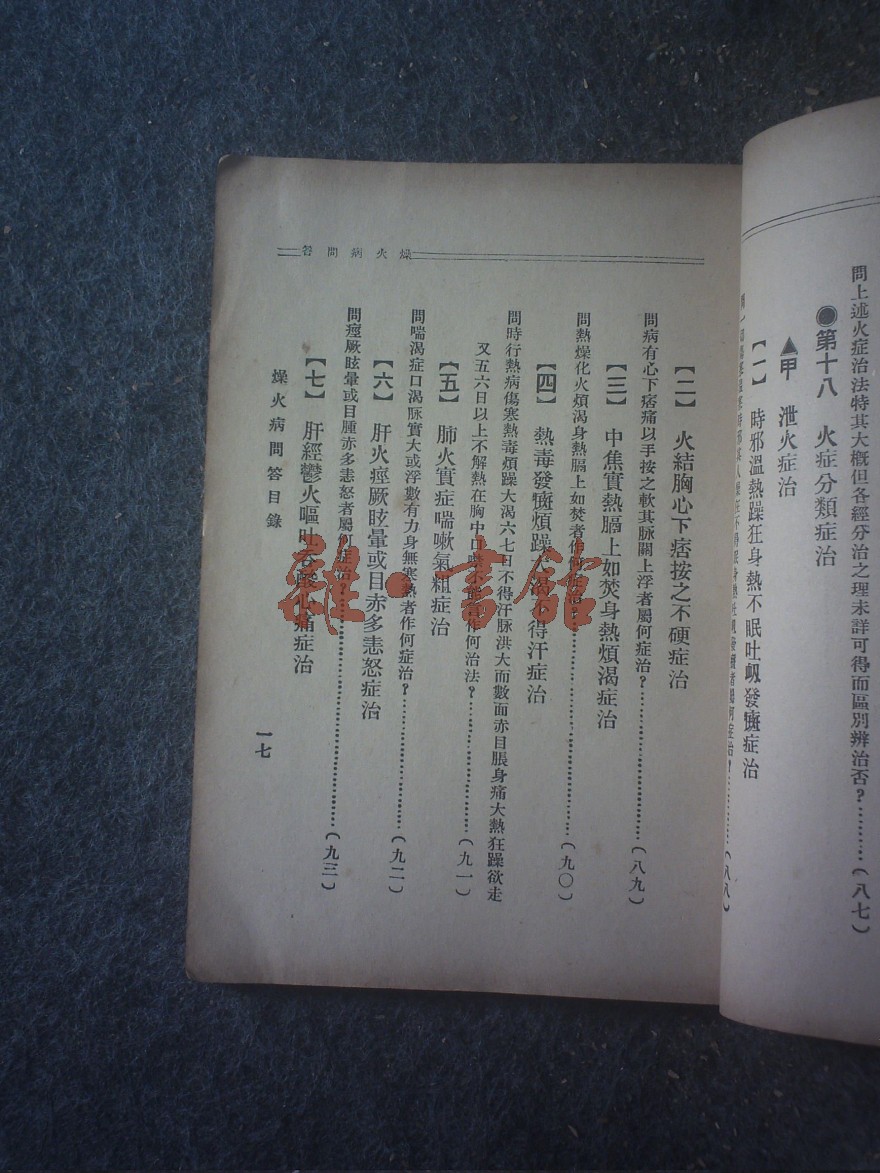 問上述火症治法特其大概但各經分治之理未詳可得而區別辨治否？………（八七）
●第十八　火症分類症治
▲甲　泄火症治
【一】　時邪溫熱躁狂身熱不眠吐衂發癍症治
（八八）
燥火病問答
【二】　火結胸心下痞按之不硬症治
問病有心下痞痛以手按之軟其脈關上浮者屬何症治？………（八九）
【三】　中焦實熱膈上如焚身熱煩渴症治
問熱燥化火煩渴身熱膈上如焚者作何症治？………（九〇）
【四】　熱毒發癍煩躁大渴不得汗症治
問時行熱病傷寒熱毒煩躁大渴六七日不得汗脉洪大而數面赤目脹身痛大熱狂躁欲走
又五六日以上不解熱在胸中口噤不能言作何治法？………（九一）
【五】　肺火實症喘嗽氣粗症治
問喘渴症口渴脈實大或浮數有力身無寒熱者作何症治？………（九二）
【六】　肝火痙厥眩暈或目赤多恚怒症治
問痙厥眩暈或目腫赤多恚怒者屬何症治？………（九三）
【七】　肝經鬱火嘔吐吞酸心痛症治
燥火病問答目錄
一七
雜·書館